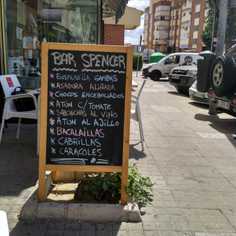 BAR SPENCER
* ENSALADILLA GAMBAS
* ASADURA ALIÑADA
* CHOCOS ENCEBOLLADOS
* ATÚN C/ TOMATE
* AL VINO
* ATÚN AL AJILLO
* BACALAILLAS
* CABRILLAS
* CARACOLES